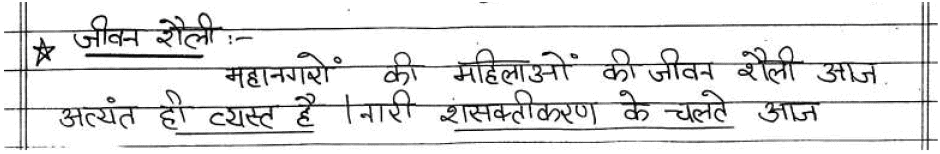 ★ जीवन शैली :-
महानगरों की महिलाओं की जीवन शैली आज
अत्यंत ही व्यस्त है । नारी शसक्तीकरण के चलते आज